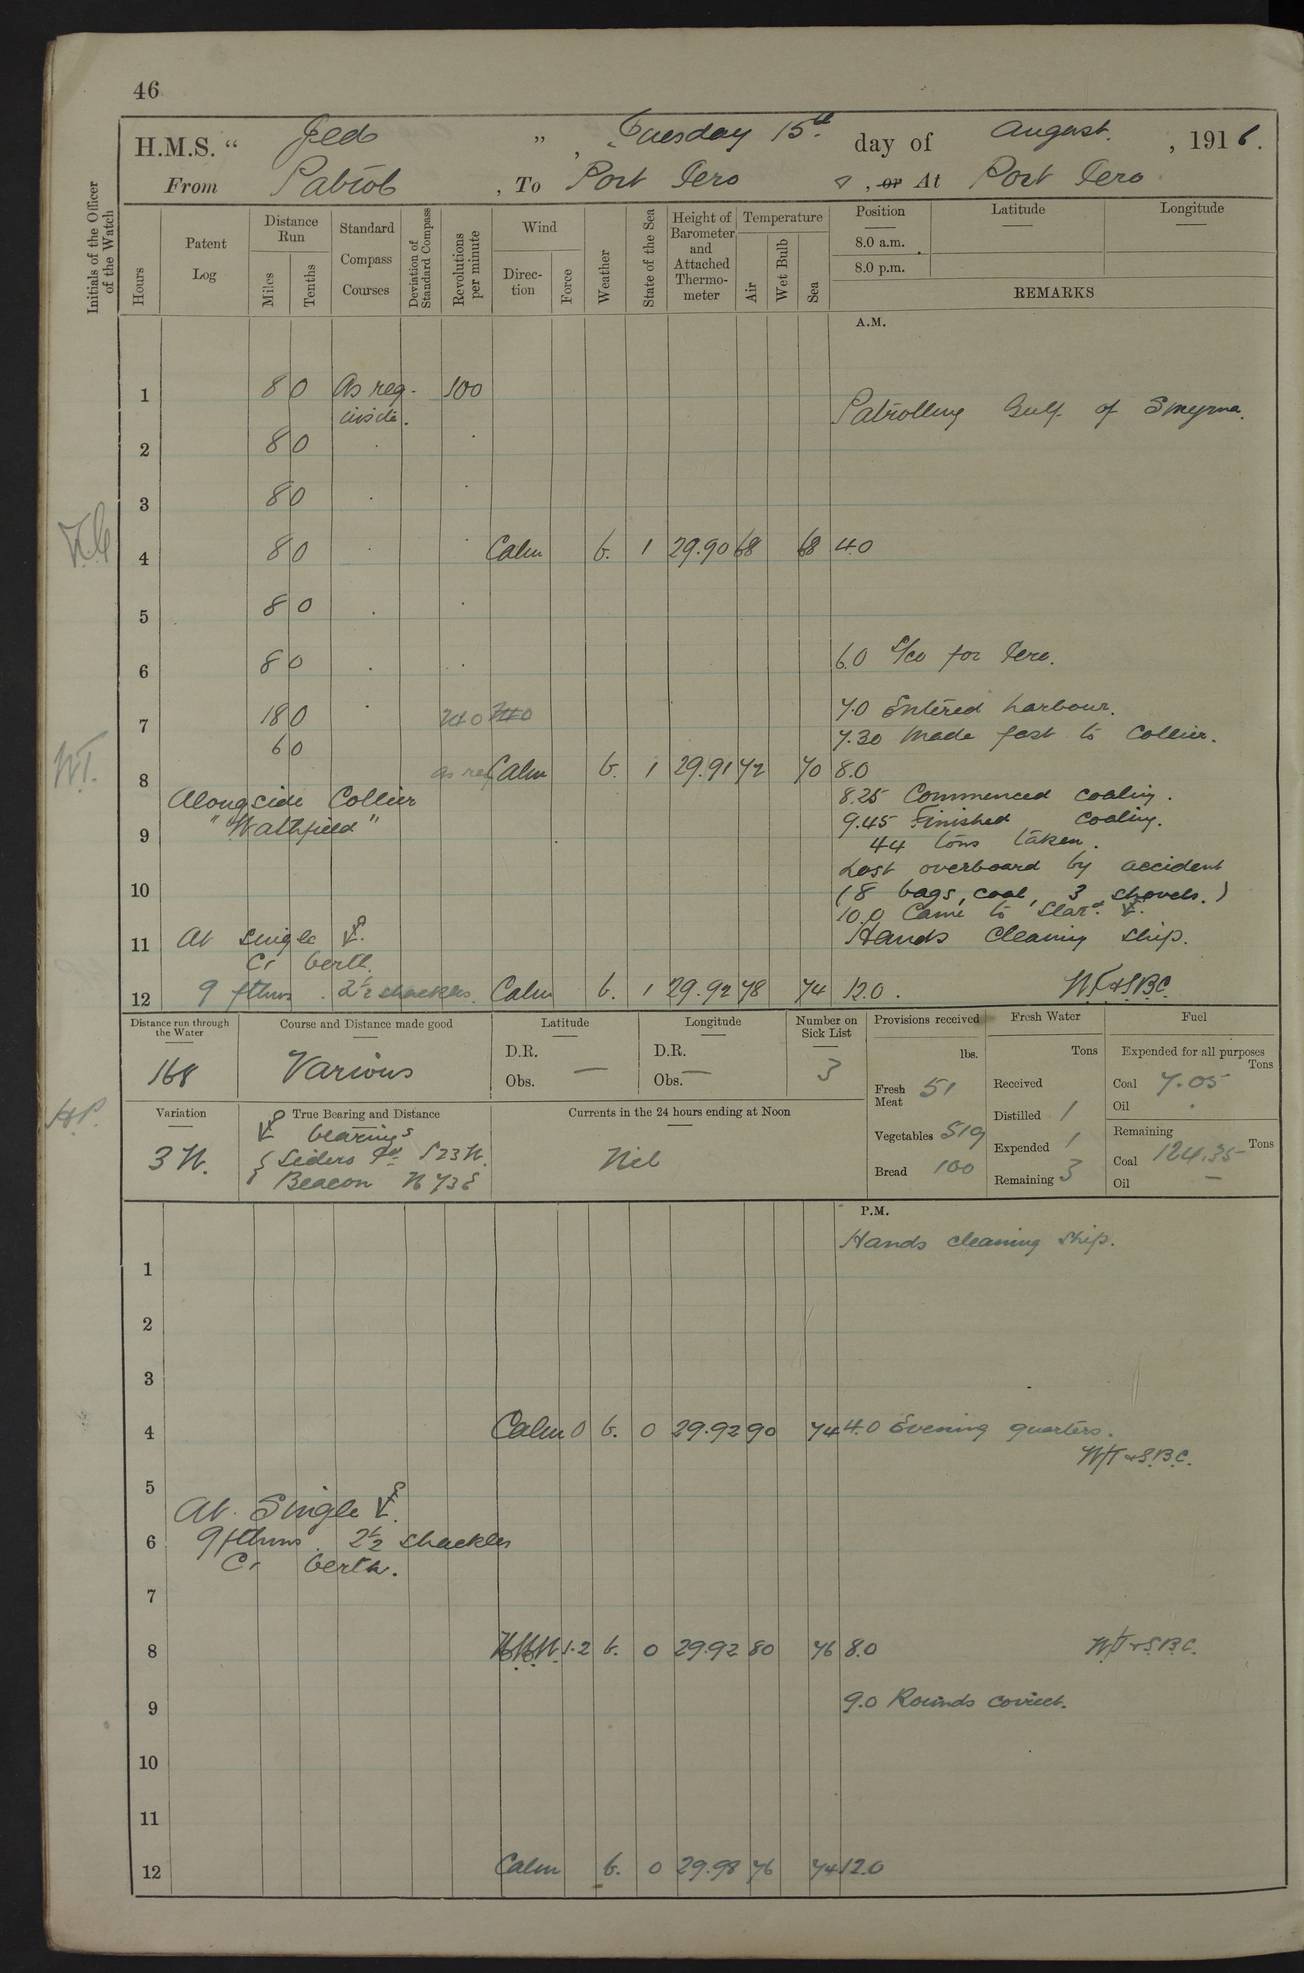 46
H.M.S. "Jed", Tuesday 15th day of August, 1916.
From Patrol, To Port Iero, or At Port Iero
Initials of the Officer of the Watch
Hours
Patent Log
Distance Run
Miles
Tenths
Standard Compass Courses
Deviation of Standard Compass
Revolutions per minute
Wind
Direction
Force
Weather
State of the Sea
Height of Barometer and Attached Thermometer
Temperature
Air
Wet Bulb
Sea
Position
Latitude
Longitude
8.0 a.m.
8.0 p.m.
REMARKS
A.M.
1 8 0 As reqisite. 100
Patrolling Gulf of Smyrna.
2 8 0
3 8 0
4 8 0 Calm b. 1 29.90 68 68 4.0
5 8 0
6 8 0 6.0 c/co for Iero.
7 18 0 240 240 7.0 Entered harbour.
6 0 7.30 Made fast to Collier.
8 as req Calm b. 1 29.91 72 70 8.0
Alongside Collier 8.25 Commenced coaling.
9 "Wathfield" 9.45 Finished coaling.
44 tons taken.
Lost overboard by accident
10 (8 bags, coal, 3 shovels.)
10.0 Came to Stard.
11 At single Hands cleaning ship.
C1 berth.
12 9 fthms. 2½ shackles. Calm b. 1 29.92 78 74 12.0. WT & S.B.C.
Distance run through the Water
168
Course and Distance made good
Various
Latitude
D.R.
Obs. —
Longitude
D.R.
Obs. —
Number on Sick List
3
Provisions received
lbs.
Fresh Meat 51
Vegetables 519
Bread 100
Fresh Water
Tons
Received
Distilled 1
Expended 1
Remaining 3
Fuel
Expended for all purposes
Tons
Coal 7.05
Oil .
Remaining
Tons
Coal 124.35
Oil —
Variation
3 W.
True Bearing and Distance
bearings
Beacon N 73 E
Currents in the 24 hours ending at Noon
Nil
P.M.
Hands cleaning ship.
1
2
3
4 Calm 0 b. 0 29.92 90 74 4.0 Evening quarters.
WT & S.B.C.
5
At Single
6 9 fthms. 2½ shackles
C1 berth.
7
8 N.N.W. 1-2 b. 0 29.92 80 76 8.0 WT & S.B.C.
9 9.0 Rounds correct.
10
11
12 Calm b. 0 29.98 76 74 12.0